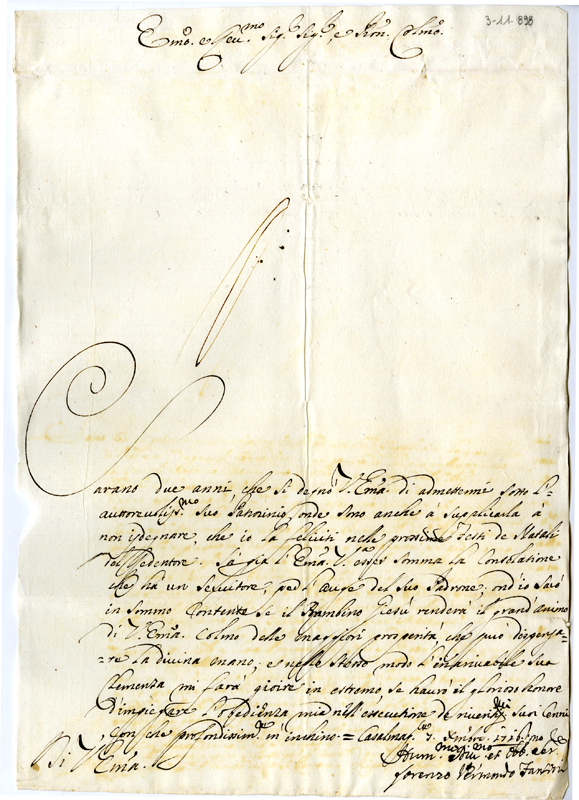 3-11-898
Emo. e Reu.mo Sig.r Sig.r, e Pron. Colmo.
Sarano due anni, che si degnò V. Ema. di admettermi sotto l'-
auttoreuolis.mo suo Patrocinio, onde sono anche à supplicarla à
non isdegnare, che io la feliciti nelle prossime Feste de Natali
del Redentore. Sà già l'Ema. V.ra esser somma la Consolatione
che hà un seruitore, ped l'auge del suo Padrone, ond'io sarò
in sommo Contento se il Bambino Giesù renderà il grand'animo
di V. Ema. Colmo delle maggiori prosperità, che può dispensa-
-re la diuina mano; e nello stesso modo l'
Clemenza mi farà gioire in estremo, se haurò il glorioso honore
d'impiegare l'obedienza mia nell'essecutione de riueriti.mi suoi Cenni
Con che profondissim.te m'inchino = Casalmag.re
Di V. Ema.
Hum.mo
Lorenzo